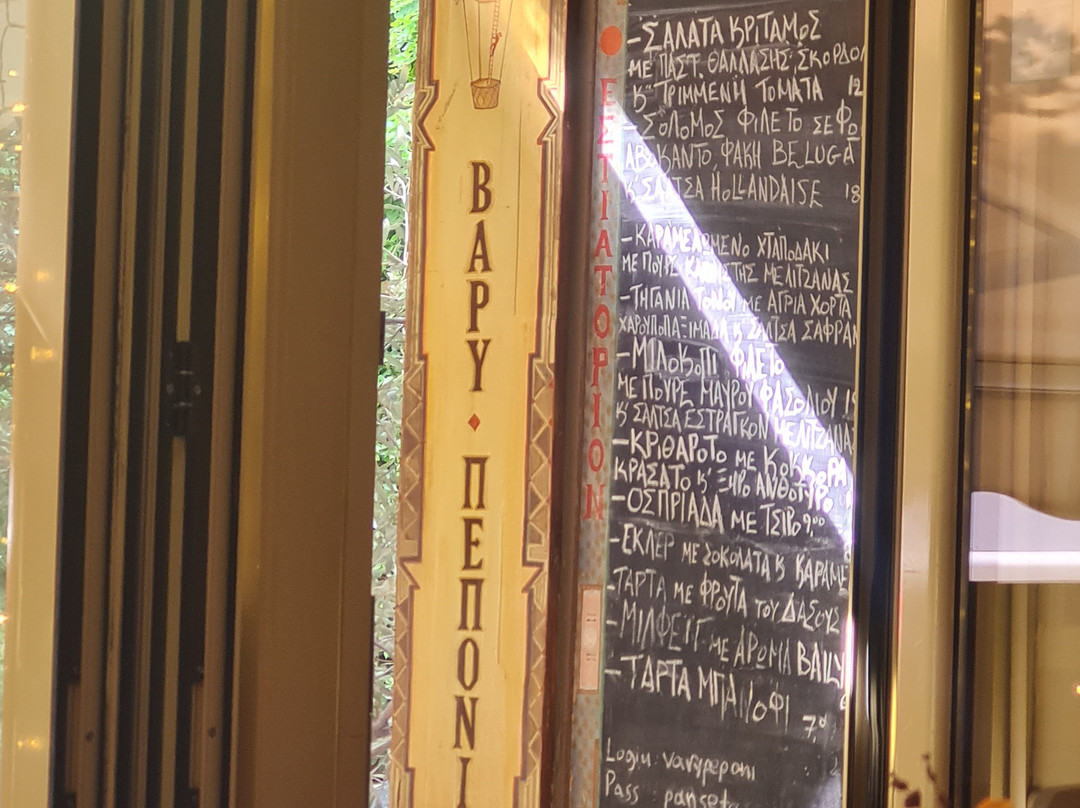 ΒΑΡΥ ΠΕΠΟΝΙ
ΕΣΤΙΑΤΟΡΙΟΝ
-ΣΑΛΑΤΑ ΚΡΙΤΑΜΟΣ
ΜΕ ΠΑΣΤ. ΘΑΛΑΣΗΣ, ΣΚΟΡΔΟ
Κ' ΤΡΙΜΜΕΝΗ ΤΟΜΑΤΑ 12
-ΣΟΛΟΜΟΣ ΦΙΛΕΤΟ ΣΕ
ΑΒΟΚΑΝΤΟ, ΦΑΚΗ BELUGA
Κ' ΣΑΛΤΣΑ HOLLANDAISE 18
-ΚΑΡΑΜΕΛΩΜΕΝΟ ΧΤΑΠΟΔΑΚΙ
ΜΕ ΠΟΥΡΕ ΚΑΠΝΙΣΤΗΣ ΜΕΛΙΤΖΑΝΑΣ
-ΤΗΓΑΝΙΑ ΤΟΝΟΥ ΜΕ ΑΓΡΙΑ ΧΟΡΤΑ
ΧΑΡΟΥΠΟΠΑΞΙΜΑΔΑ Κ' ΣΑΛΤΣΑ ΣΑΦΡΑΝ
-ΜΙΛΟΚΟΠΙ ΦΙΛΕΤΟ
ΜΕ ΠΟΥΡΕ ΜΑΥΡΟΥ ΦΑΣΟΛΙΟΥ
Κ' ΣΑΛΤΣΑ ΕΣΤΡΑΓΚΟΝ ΜΕΛΤΖΑΝΑ
-ΚΡΙΘΑΡΟΤΟ ΜΕ ΚΟΚΚΟΡΑ
ΚΡΑΣΑΤΟ Κ' ΞΗΡΟ ΑΝΘΟΤΥΡΟ
-ΟΣΠΡΙΑΔΑ ΜΕ ΤΣΙΡΟ 9,00
-ΕΚΛΕΡ ΜΕ ΣΟΚΟΛΑΤΑ Κ' ΚΑΡΑΜΕ
-ΤΑΡΤΑ ΜΕ ΦΡΟΥΤΑ ΤΟΥ ΔΑΣΟΥΣ
-ΜΙΛΦΕΙΓ ΜΕ ΑΡΩΜΑ BAILY
-ΤΑΡΤΑ ΜΠΑΝΟΦΙ
Login: varypeponi
Pass :